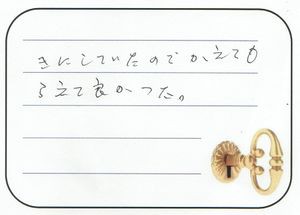 きにしていたのでかえても
らえて良かった。